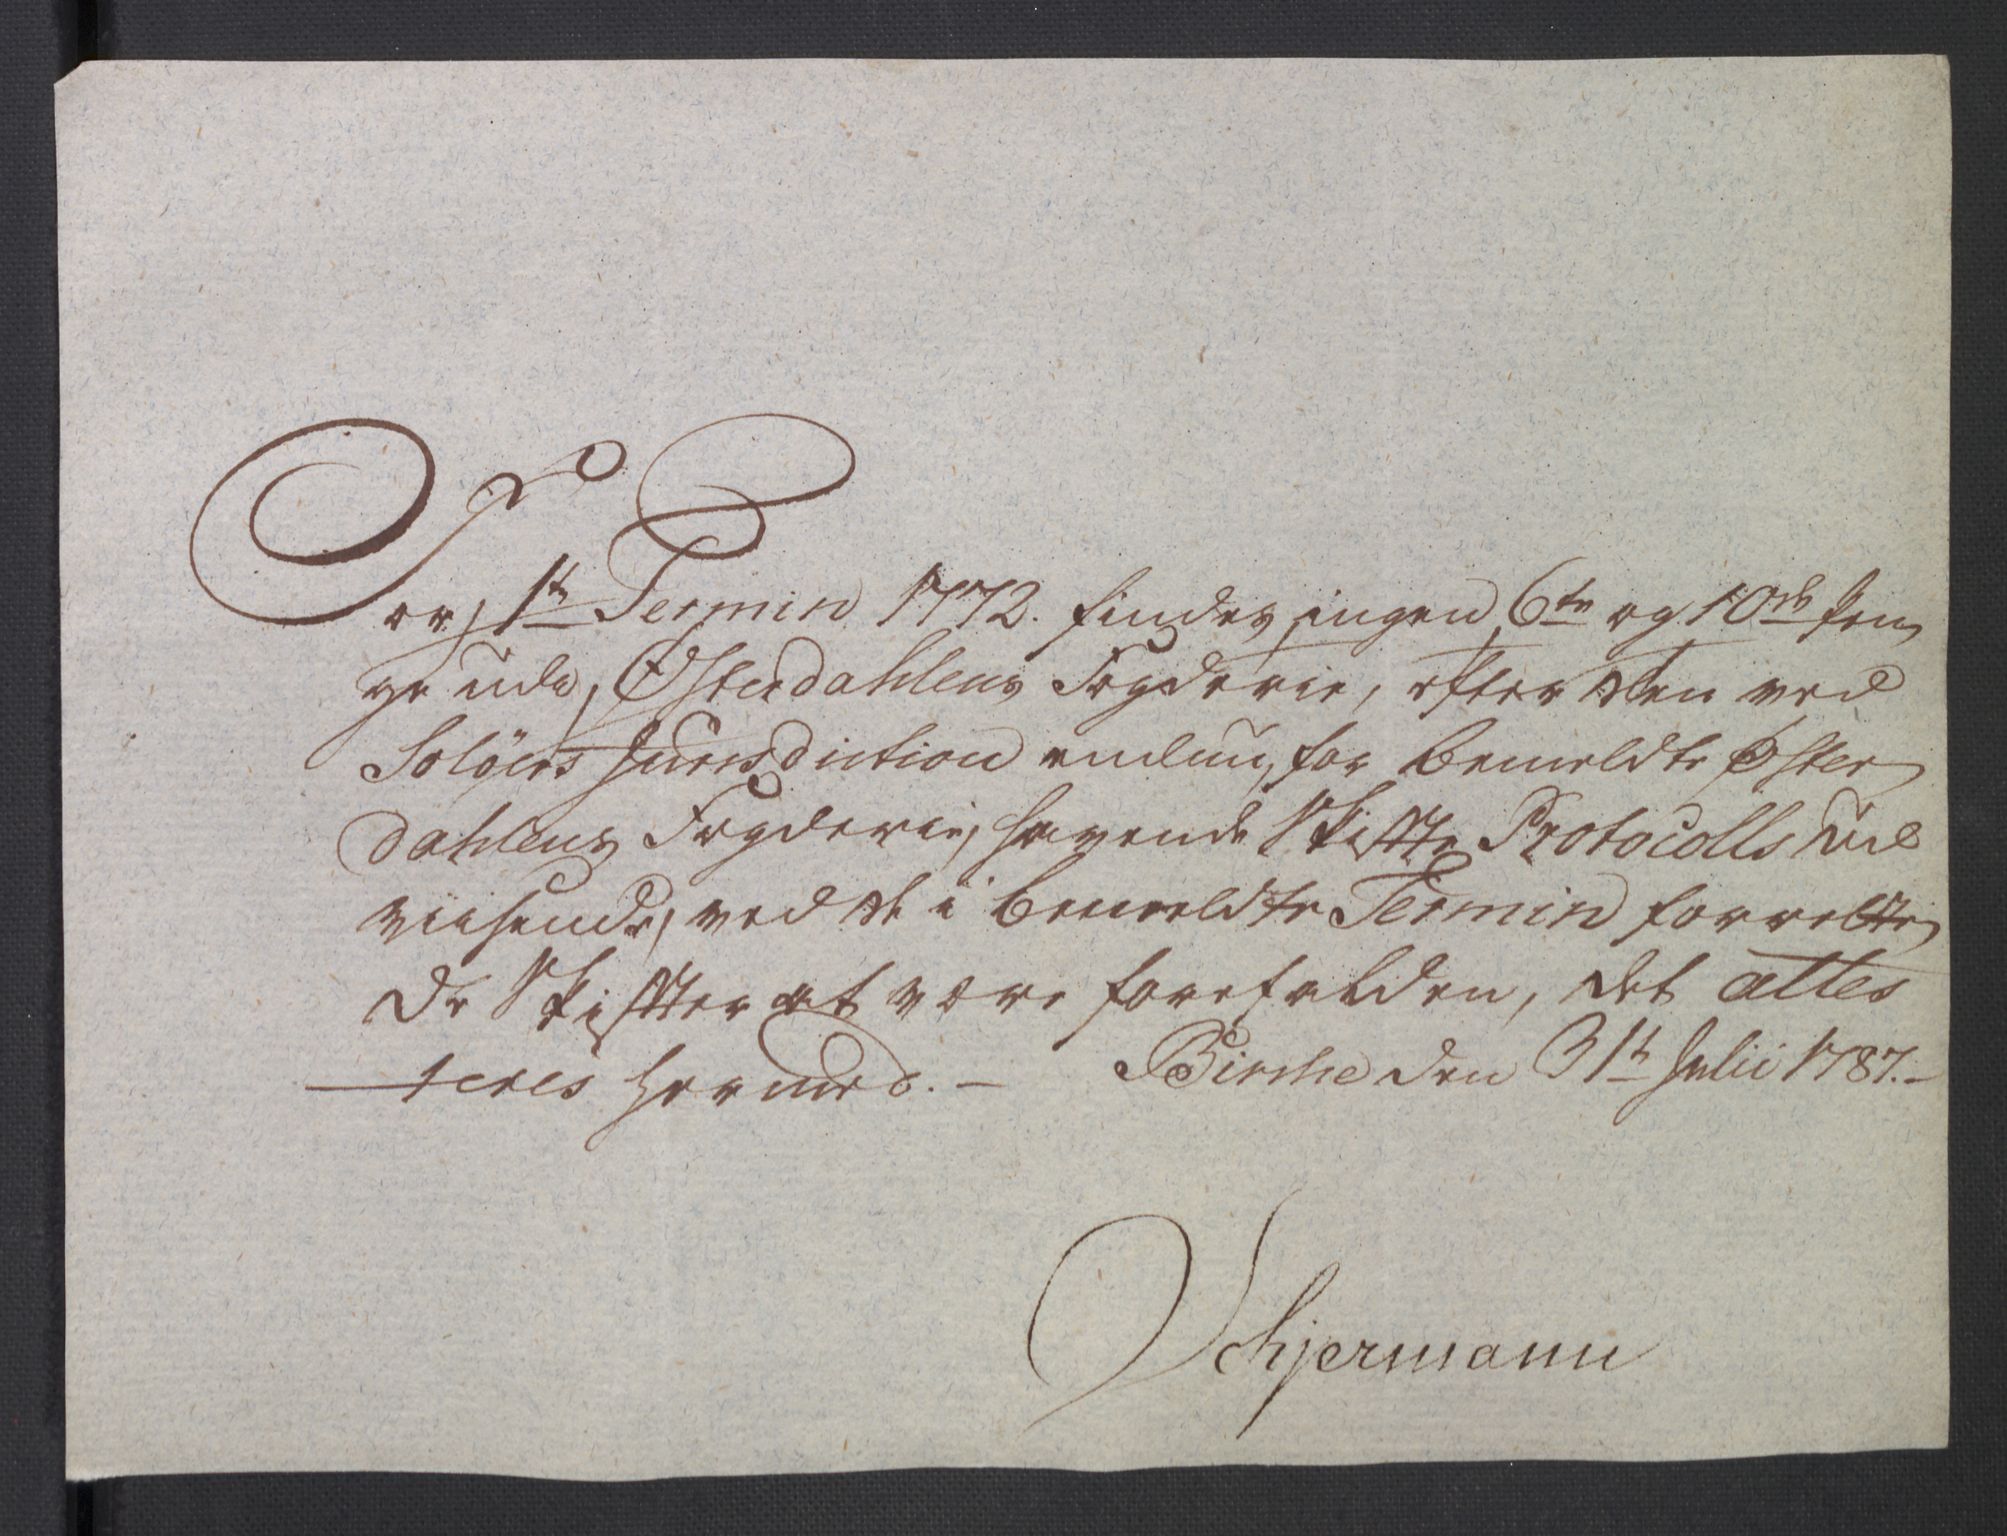 For 1te Termin 1772. findes ingen 6te og 10de Pen
ge udi Østerdahlens Fogderie, efter den ved
Solöers Jurisdiction endnu, for bemeldte Øster
dahlens Fogderie, havende Skifte Protocolls Ud
viisende, ved de i bemeldte Termin forrette
de Skifter at være forefalden, det attes
teres hermed. - Birche den 31te Julii 1787. -
Schjermann